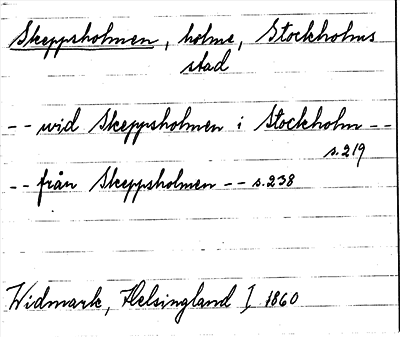 Skeppsholmen, holme, Stockholms
stad
-- wid Skeppsholmen i Stockholm --
s.219
-- från Skeppsholmen -- s.238
Widmark, Helsingland I 1860